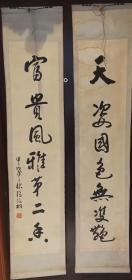 天姿國色無雙艷
富貴風雅第二香